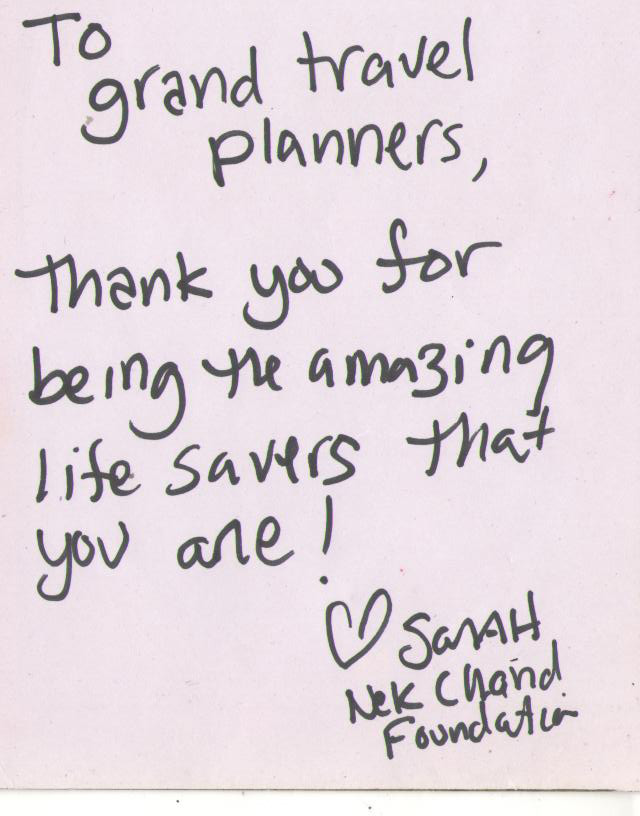 To
grand travel
planners,
Thank you for
being the amazing
life savers that
you are!
♡ SARAH
Nek Chand
Foundation